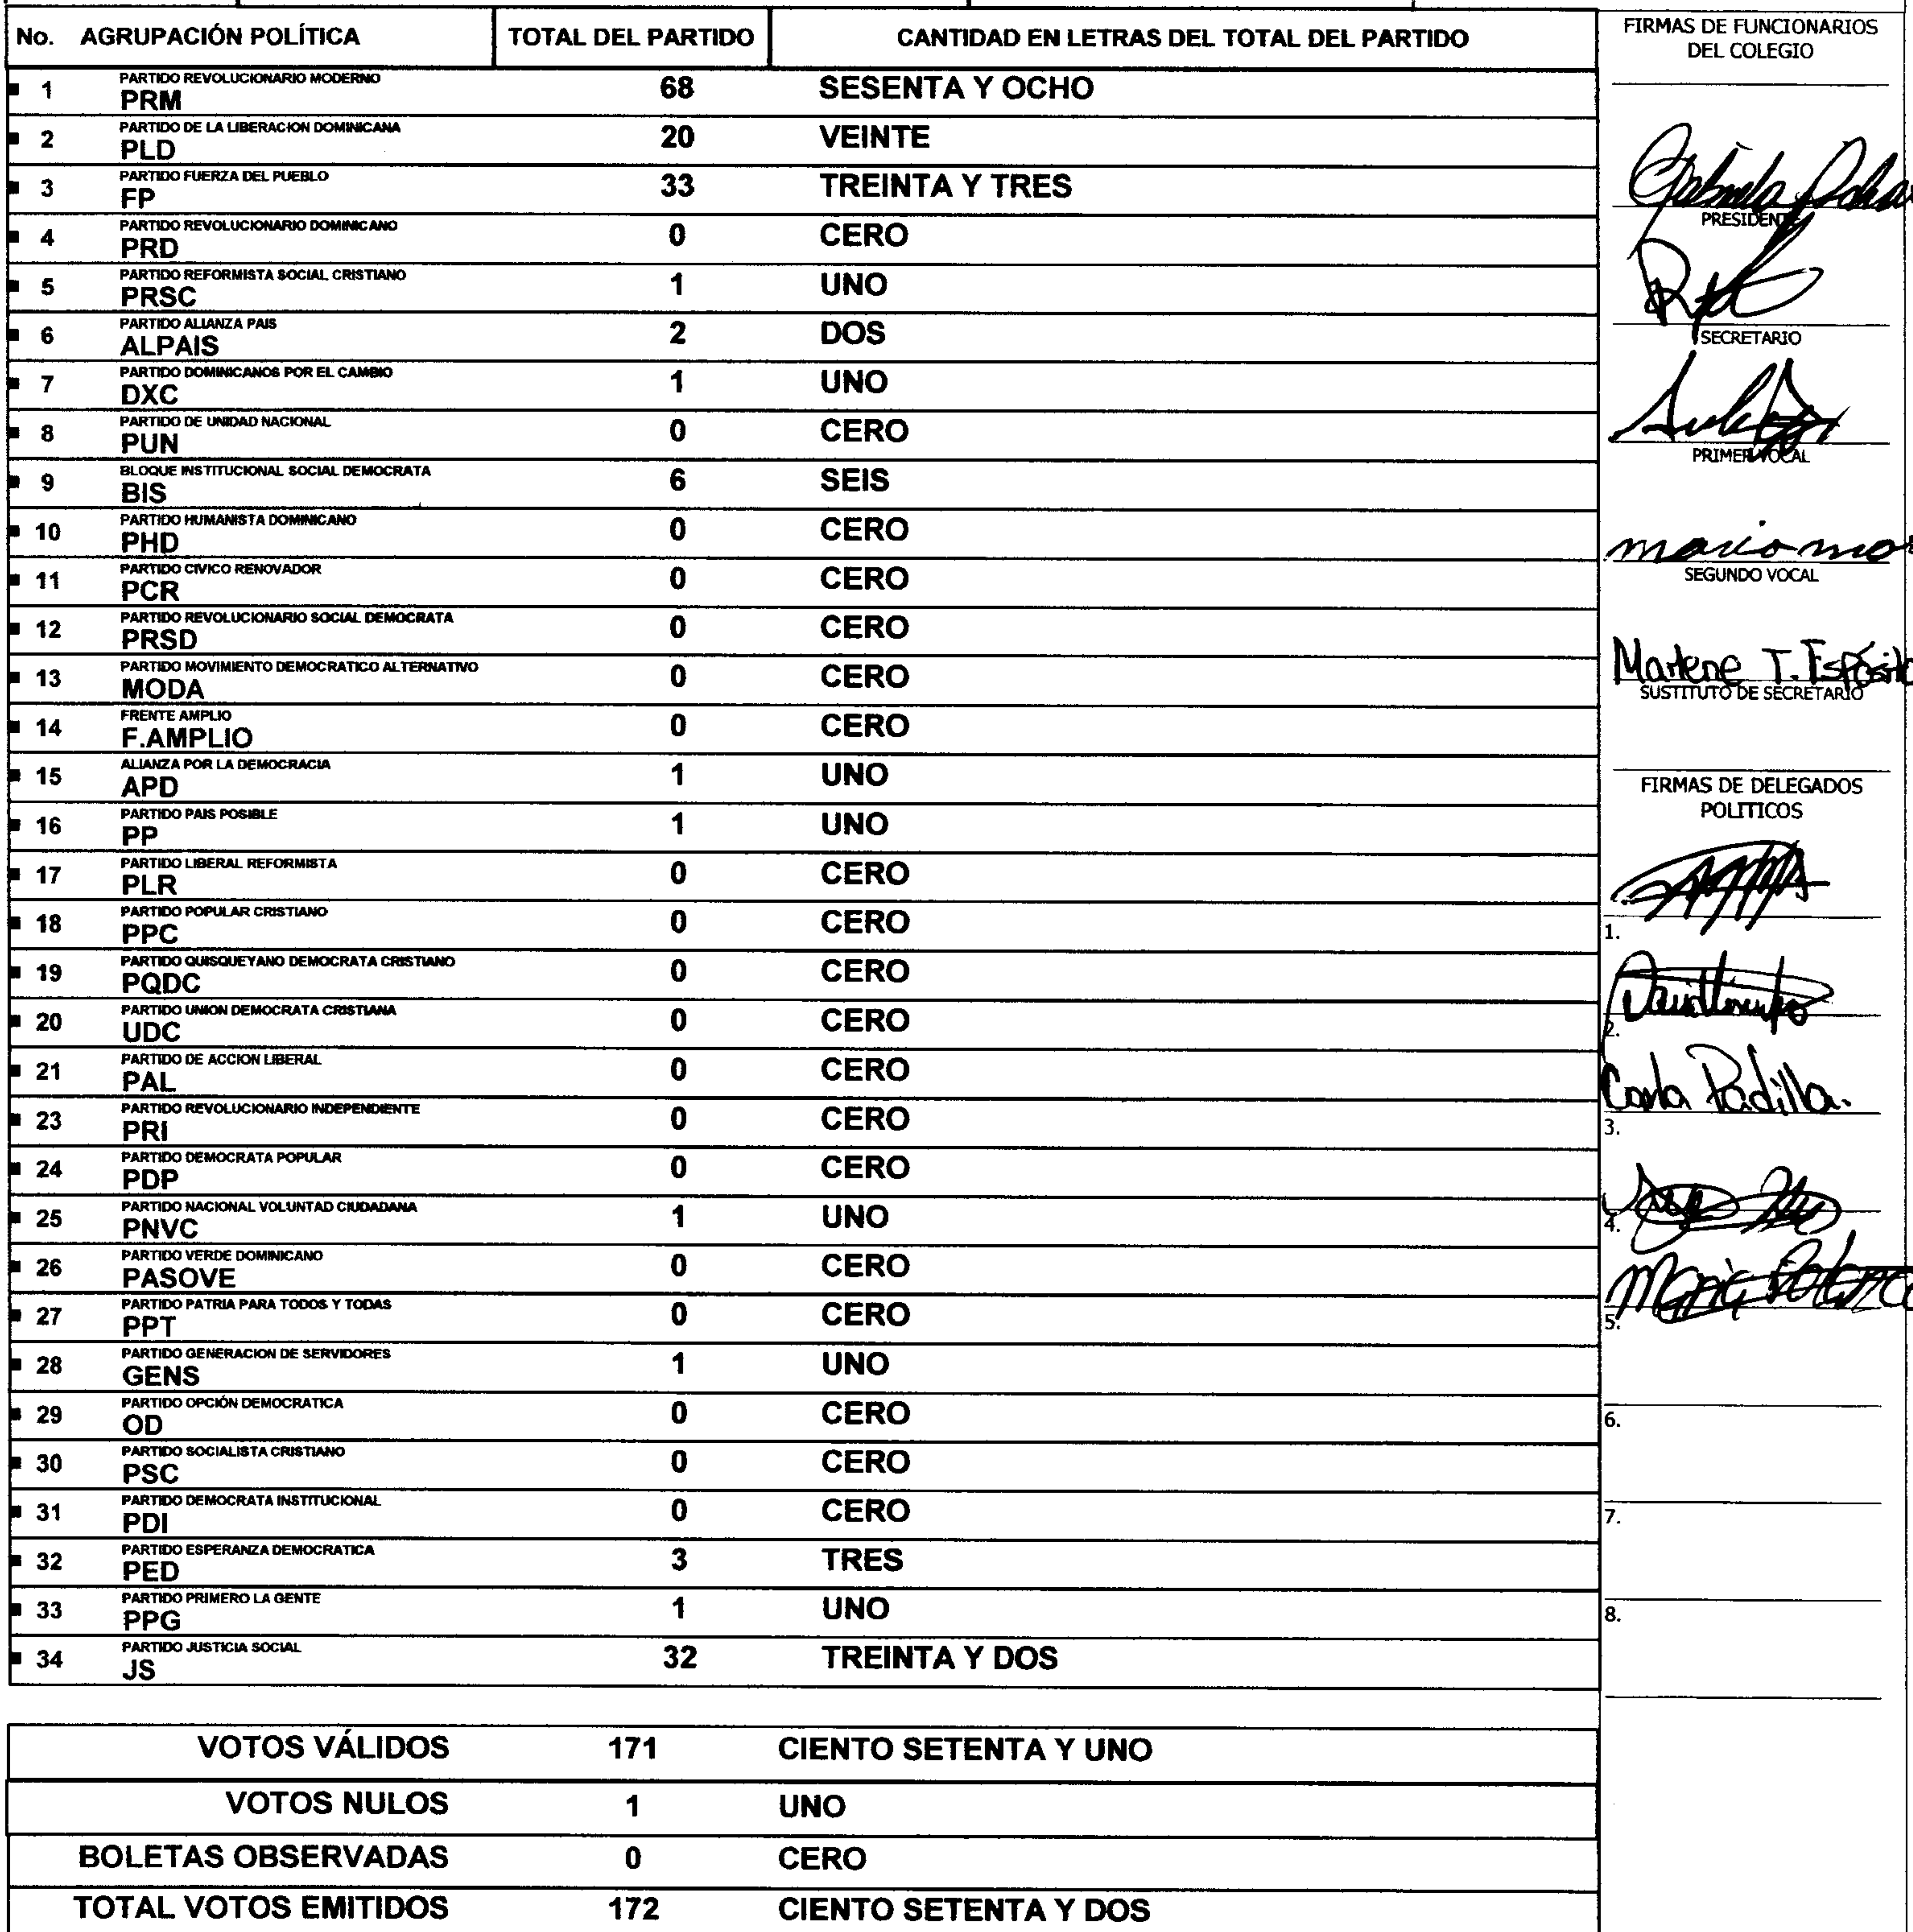 No. AGRUPACIÓN POLÍTICA TOTAL DEL PARTIDO CANTIDAD EN LETRAS DEL TOTAL DEL PARTIDO
PARTIDO REVOLUCIONARIO MODERNO
1 PRM 68 SESENTA Y OCHO
PARTIDO DE LA LIBERACION DOMINICANA
2 PLD 20 VEINTE
PARTIDO FUERZA DEL PUEBLO
3 FP 33 TREINTA Y TRES
PARTIDO REVOLUCIONARIO DOMINICANO
4 PRD 0 CERO
PARTIDO REFORMISTA SOCIAL CRISTIANO
5 PRSC 1 UNO
PARTIDO ALIANZA PAIS
6 ALPAIS 2 DOS
PARTIDO DOMINICANOS POR EL CAMBIO
7 DXC 1 UNO
PARTIDO DE UNIDAD NACIONAL
8 PUN 0 CERO
BLOQUE INSTITUCIONAL SOCIAL DEMOCRATA
9 BIS 6 SEIS
PARTIDO HUMANISTA DOMINICANO
10 PHD 0 CERO
PARTIDO CIVICO RENOVADOR
11 PCR 0 CERO
PARTIDO REVOLUCIONARIO SOCIAL DEMOCRATA
12 PRSD 0 CERO
PARTIDO MOVIMIENTO DEMOCRATICO ALTERNATIVO
13 MODA 0 CERO
FRENTE AMPLIO
14 F.AMPLIO 0 CERO
ALIANZA POR LA DEMOCRACIA
15 APD 1 UNO
PARTIDO PAIS POSIBLE
16 PP 1 UNO
PARTIDO LIBERAL REFORMISTA
17 PLR 0 CERO
PARTIDO POPULAR CRISTIANO
18 PPC 0 CERO
PARTIDO QUISQUEYANO DEMOCRATA CRISTIANO
19 PQDC 0 CERO
PARTIDO UNION DEMOCRATA CRISTIANA
20 UDC 0 CERO
PARTIDO DE ACCION LIBERAL
21 PAL 0 CERO
PARTIDO REVOLUCIONARIO INDEPENDIENTE
23 PRI 0 CERO
PARTIDO DEMOCRATA POPULAR
24 PDP 0 CERO
PARTIDO NACIONAL VOLUNTAD CIUDADANA
25 PNVC 1 UNO
PARTIDO VERDE DOMINICANO
26 PASOVE 0 CERO
PARTIDO PATRIA PARA TODOS Y TODAS
27 PPT 0 CERO
PARTIDO GENERACION DE SERVIDORES
28 GENS 1 UNO
PARTIDO OPCIÓN DEMOCRATICA
29 OD 0 CERO
PARTIDO SOCIALISTA CRISTIANO
30 PSC 0 CERO
PARTIDO DEMOCRATA INSTITUCIONAL
31 PDI 0 CERO
PARTIDO ESPERANZA DEMOCRATICA
32 PED 3 TRES
PARTIDO PRIMERO LA GENTE
33 PPG 1 UNO
PARTIDO JUSTICIA SOCIAL
34 JS 32 TREINTA Y DOS
VOTOS VÁLIDOS 171 CIENTO SETENTA Y UNO
VOTOS NULOS 1 UNO
BOLETAS OBSERVADAS 0 CERO
TOTAL VOTOS EMITIDOS 172 CIENTO SETENTA Y DOS
FIRMAS DE FUNCIONARIOS
DEL COLEGIO
PRESIDENTE
SECRETARIO
PRIMER VOCAL
SEGUNDO VOCAL
Marlene T. Esposito
SUSTITUTO DE SECRETARIO
FIRMAS DE DELEGADOS
POLITICOS
1.
2.
Carla Padilla.
3.
4.
5.
6.
7.
8.